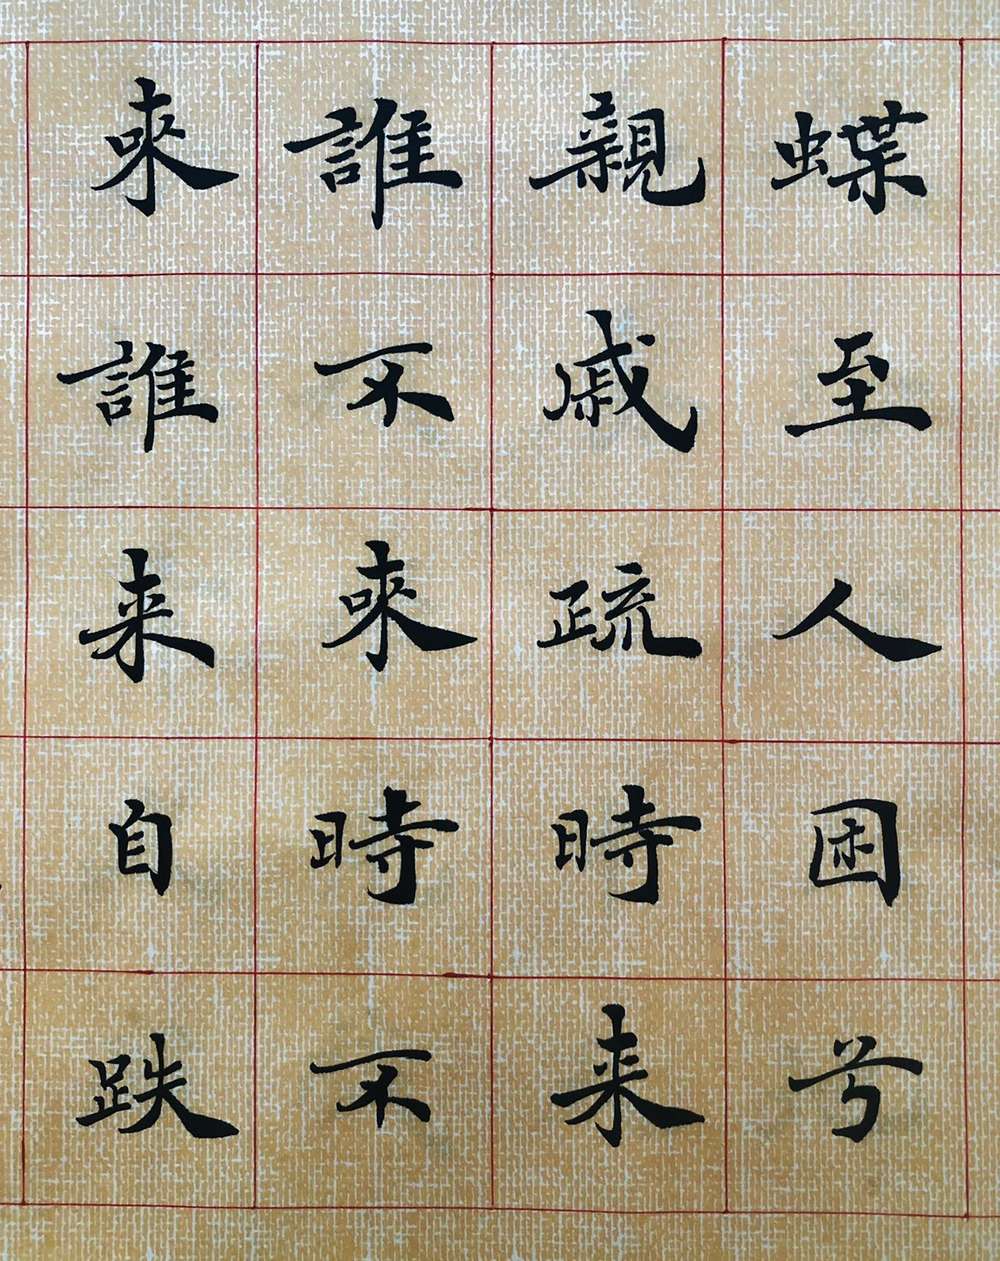 蝶至人困兮
親戚疏時来
誰不來時不
來誰来自跌